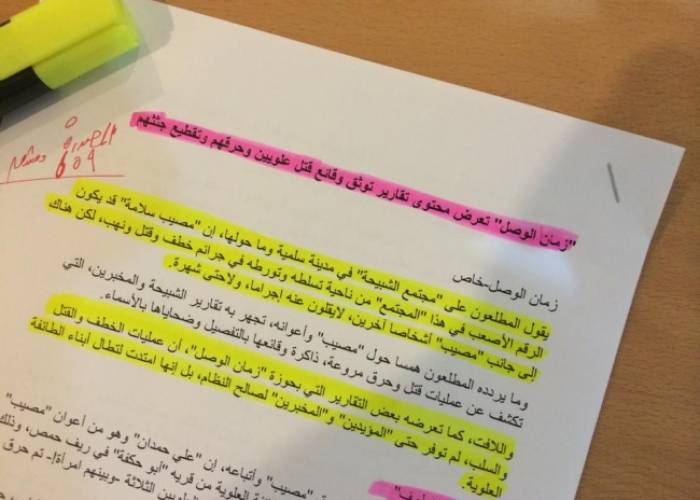 609
"زمان الوصل" تعرض محتوى تقارير توثق وقائع قتل علويين وحرقهم وتقطيع جثثهم
زمان الوصل-خاص
يقول المطلعون على "مجتمع الشبيحة" في مدينة سلمية وما حولها، إن "مصيب سلامة" قد يكون
الرقم الأصعب في هذا "المجتمع" من ناحية تسلطه وتورطه في جرائم خطف وقتل ونهب، لكن هناك
إلى جانب "مصيب" أشخاصا آخرين، لايقلون عنه إجراما، ولاحتى شهرة.
وما يردده المطلعون همسا حول "مصيب" وأعوانه، تجهر به تقارير الشبيحة والمخبرين، التي
تكشف عن عمليات قتل وحرق مروعة، ذاكرة وقائعها بالتفصيل وضحاياها بالأسماء.
واللافت، كما تعرضه بعض التقارير التي بحوزة "زمان الوصل"، أن عمليات الخطف والقتل
والسلب، لم توفر حتى "المؤيدين" و"المخبرين" لصالح النظام، بل إنها امتدت لتطال أبناء الطائفة
العلوية.
"مصيب" وأتباعه، إن "علي حمدان" وهو من أعوان "مصيب"
العلوية من قرية "أبو حكفة" في ريف حمص، وذلك
الثلاثة -وبينهم امرأة!- تم حرق